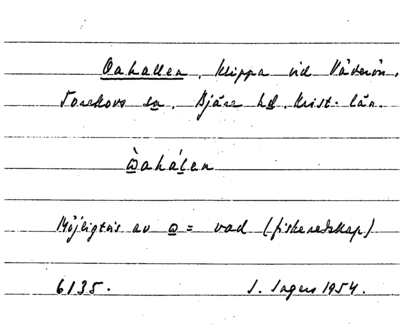 Oahallen. Klippa vid Väderön,
Torekovs sn. Bjäre hd. Krist. län.
òahálen
Möjligtvis av o = vad (fiskeredskap)
6135. I. Ingers 1954.